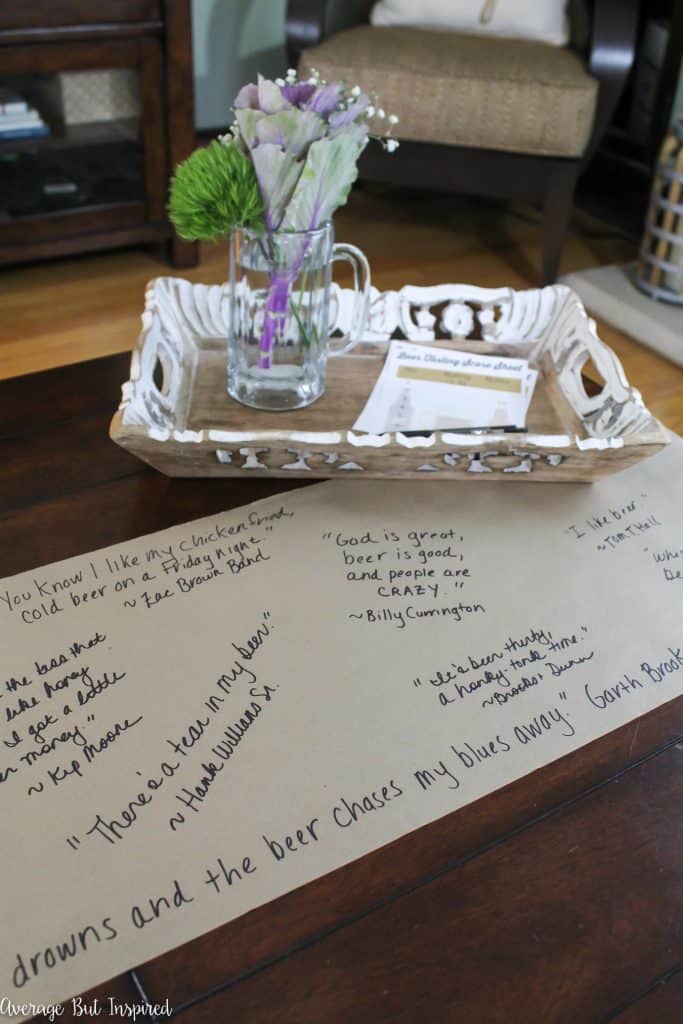 Beer Tasting Score Sheet
You Know I like my chicken fried,
cold beer on a Friday night."
~ Zac Brown Band
"God is great,
beer is good,
and people are
CRAZY."
~Billy Currington
"I like beer."
~Tom T. Hall
"Whe
be
the boss that
like honey
I got a little
money"
~ Kip Moore
"There's a tear in my beer."
~ Hank Williams Sr.
"It's a beer thirty,
a honky-tonk time."
~Brooks & Dunn
drowns and the beer chases my blues away." Garth Brook
Average But Inspired